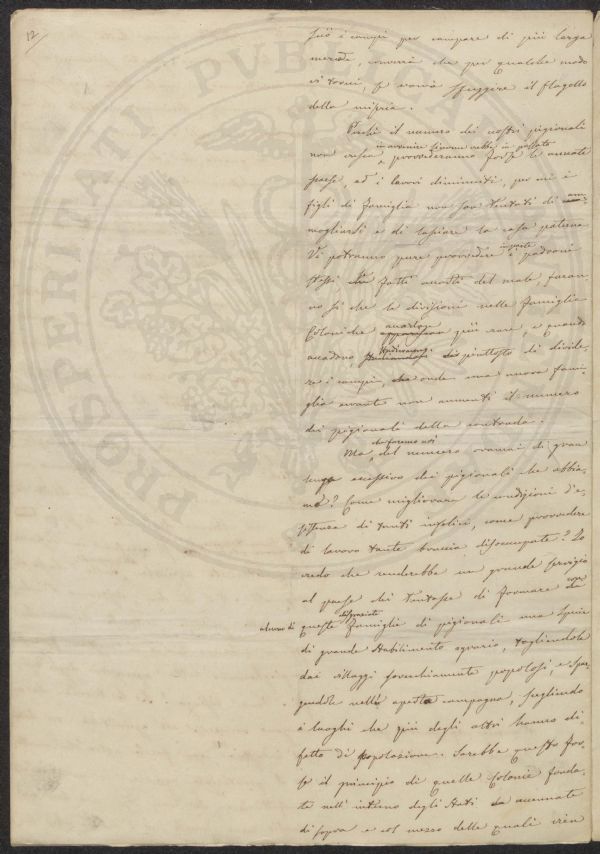 12
suo i campi per campare di più larga
mercede, converrà che per qualche modo
vi torni, se vorrà sfuggire il flagello
della miseria.
Perché il numero dei nostri pigionali
in avvenire siccome crebbe in passato
non cresca, provvederanno forse le annate
scarse, ed i lavori diminuiti, per cui i
figli di famiglia non son tentati di am-
mogliarsi e di lasciare la casa paterna
Vi potranno pure provvedere in parte i padroni
stessi, fatti accorti del male, faran-
no sì che le divisioni nelle famiglie
Coloniche avvengano più rare, e quando
accadono piuttosto di divide-
re i campi, onde una nuova fami-
glia errante non aumenti il numero
dei pigionali della contrada.
Ma che faremo noi del numero oramai di gran
lunga eccessivo dei pigionali che abbia-
mo? Come migliorare le condizioni d'e-
sistenza di tanti infelici, come provvedere
di lavoro tante braccia disoccupate? Io
credo che renderebbe un grande servigio
al paese chi tentasse di formare con
alcune di queste disgraziate famiglie di pigionali una specie
di grande stabilimento agrario, togliendole
dai villaggi soverchiamente popolosi, e spar-
gendole nell'aperta campagna, scegliendo
i luoghi che più degli altri hanno di-
fetto di popolazione. Sarebbe questo for-
se il principio di quelle Colonie fonda-
te nell'interno degli Stati accennate
di sopra e col mezzo delle quali
PROSPERITATI PUBLICAE